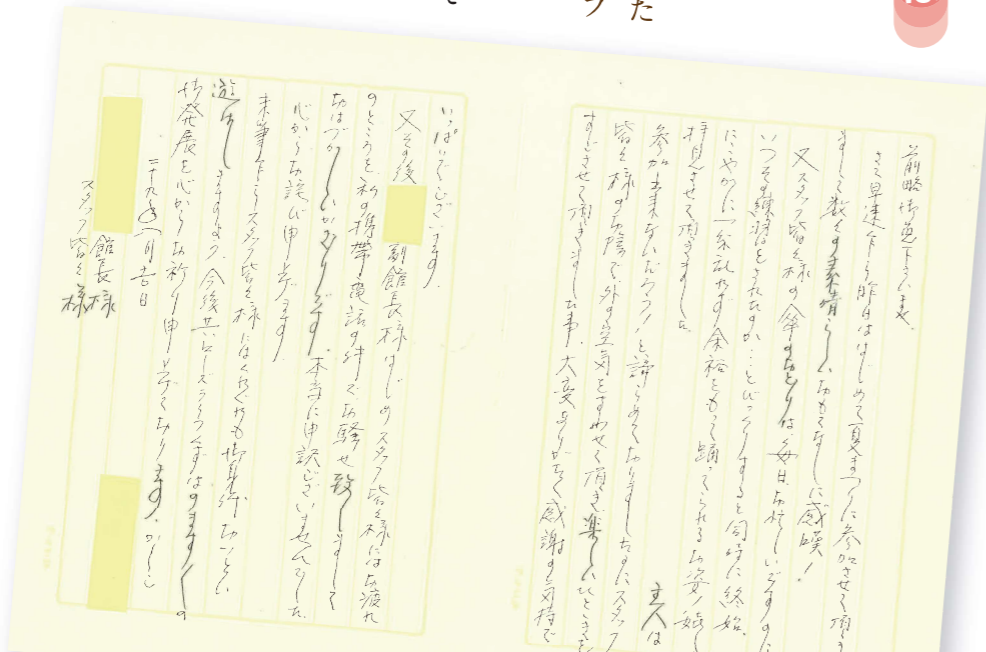 前略御免下さいませ
さて早速乍ら昨日ははじめて夏まつりに参加させて頂き
まして数々の素晴らしいおもてなしに感嘆!
又スタッフ皆々様の傘のおどりは、毎日お忙しい
いつその練習をされたのか、とびっくりすると同時に終始
にこやかに一糸乱れず余裕をもって踊っておられるお姿
拝見させて頂きました
主人は
参加出来ないだろう、と諦めておりましたのにスタッフ
皆々様のお陰で外の空気をすわせて頂き楽しいひとときを
すごさせて頂きました事、大変ありがたく感謝の気持で
いっぱいでございます。
又その後
副館長様はじめスタッフ皆々様にはお疲れ
のところを私の携帯電話の件でお騒せ致しまして
おはづかしいかぎりです。本当に申訳ございませんでした
心からお詫び申上げます。
末筆乍らスタッフ皆々様にはくれぐれも御身体おいとい
遊ばしますよう、今後共ローズライフくずはのますますの
御発展を心からお祈り申し上げております、かしこ
二十九年 月吉日
館長様
スタッフ皆々様
た